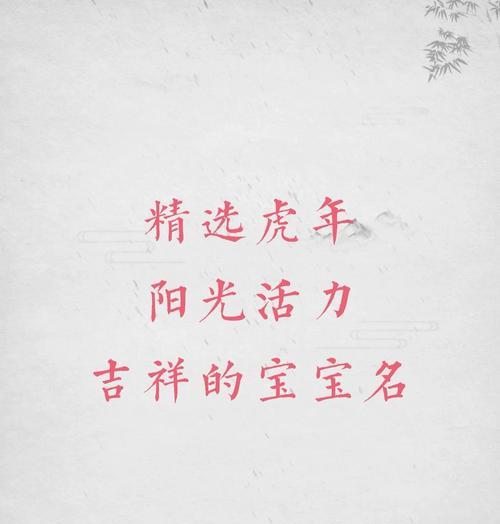 精选虎年
阳光活力
吉祥的宝宝名